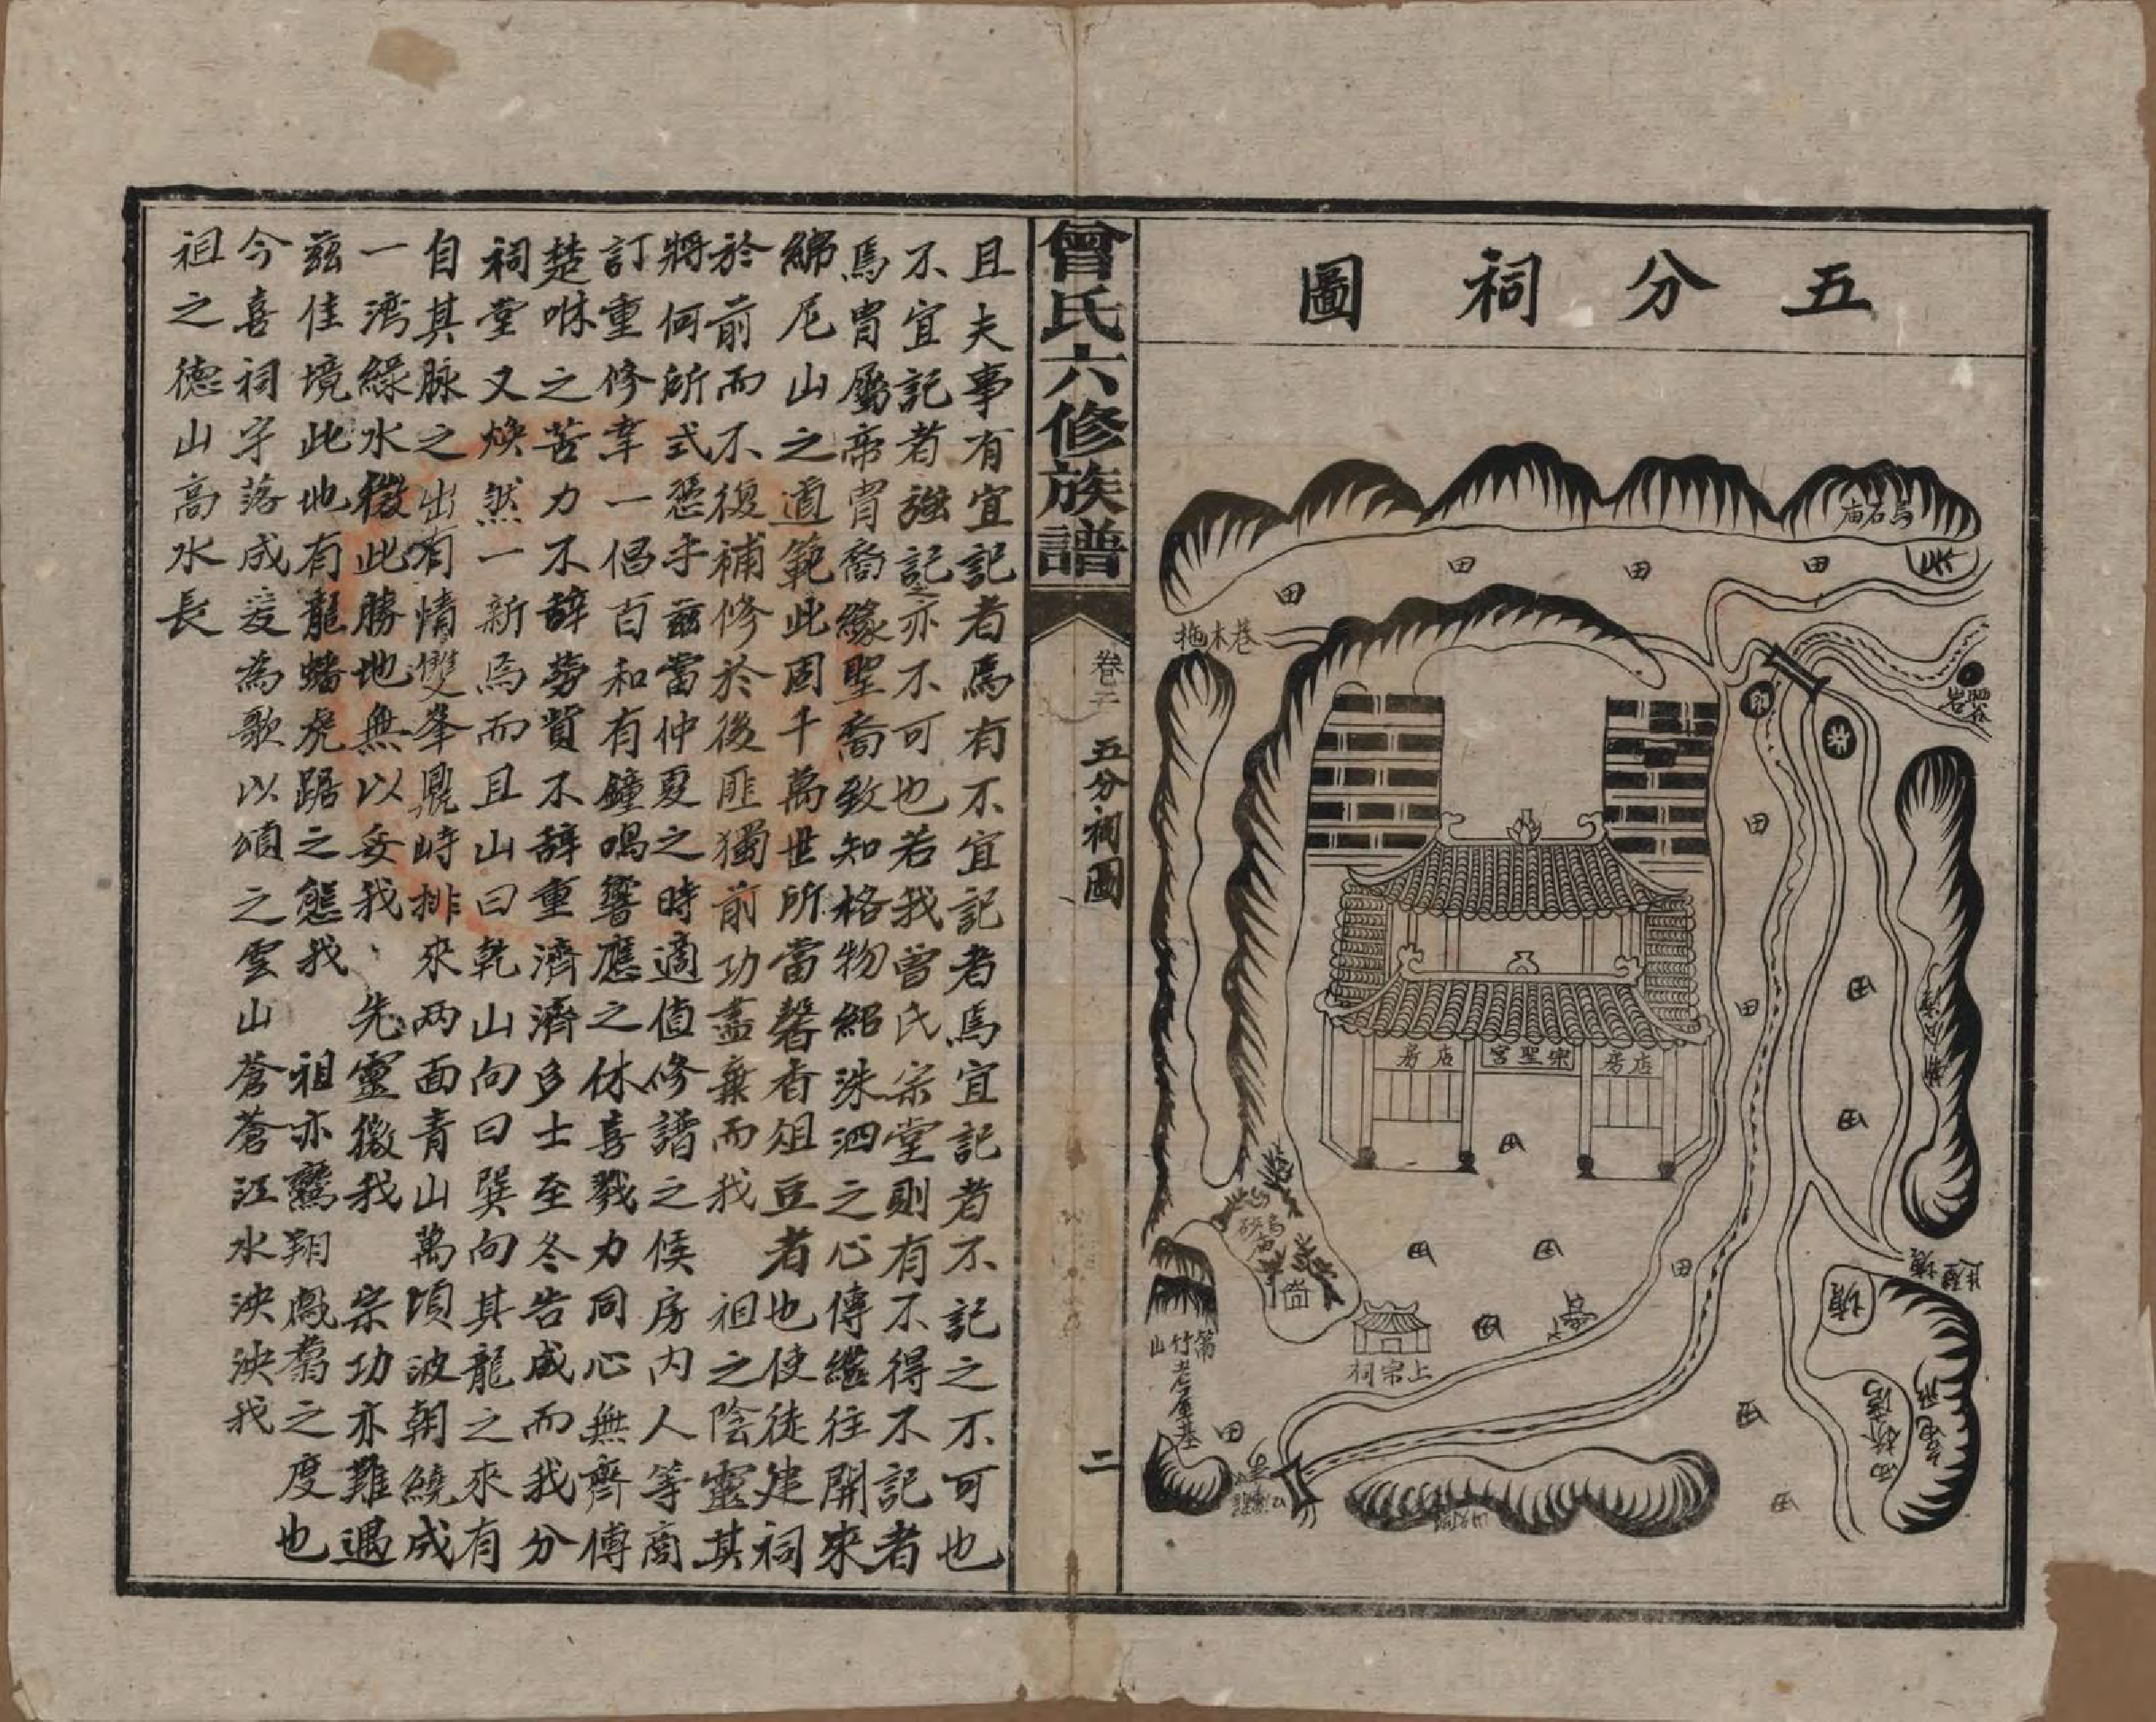 五分祠圖
烏石庙
田
田
田
田
拖木巷
井
田
田
田
田
宗聖宮
店房
店房
田
田
田
田
田
亭
上宗祠
塘
竹山
老屋基
田
田
田
曾氏六修族譜
卷二
五分祠圖
二
且夫事有宜記者焉有不宜記者焉宜記者不記之不可也
不宜記者強記之亦不可也若我曾氏宗堂則有不得不記者
焉胄屬帝胄裔緣聖裔致知格物紹洙泗之心傳繼往開來
綿尼山之道範此固千萬世所當馨香俎豆者也使徒建祠
於前而不復補修於後匪獨前功盡棄而我祖之陰靈其
將何所式憑乎茲當仲夏之時適值修譜之候房内人等商
訂重修韋一倡百和有鐘鳴響應之休喜戮力同心無齊傅
楚咻之苦力不辞勞貲不辞重濟濟多士至冬告成而我分
祠堂又煥然一新焉而且山曰乾山向曰巽向其龍之來有
自其脉之出有情雙峯鼎峙排來两面青山萬頃波朝繞成
一湾綠水徵此勝地無以妥我先靈徵我宗功亦難遇
茲佳境此地有龍蟠虎踞之態我祖亦鸞翔鳳翥之度也
今喜祠宇落成爰為歌以頌之雲山蒼蒼江水泱泱我
祖之德山高水長